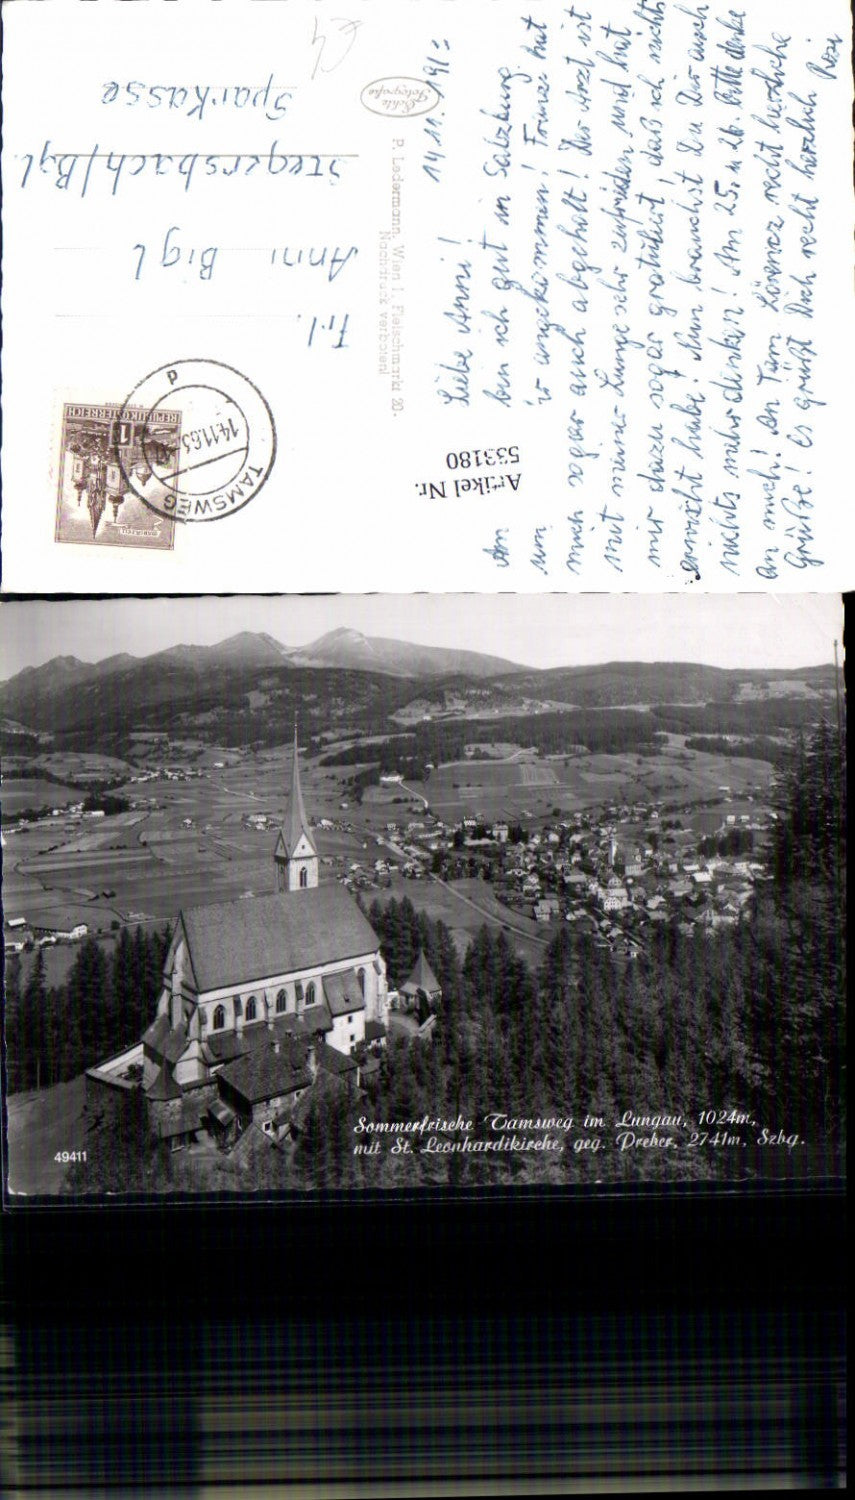 14.11. 196
Liebe Anni!
bin ich gut in Salzburg
angekommen! Franz hat
mich sogar auch abgeholt! Der Arzt ist
mit meiner Lunge sehr zufrieden und hat
mir dazu sogar gratuliert, daß ich nichts
erwischt habe! Nun brauchst Du Dir auch
nichts mehr denken! Am 25. u 26. bitte denke
an mich! An Fam. Lorenz recht herzliche
Grüße! Es grüßt Dich recht herzlich Resi
Frl.
Anni Bigl
Stegersbach/Bgl.
Sparkasse
€4
Echte
Fotografie
P. Ledermann, Wien I, Fleischmarkt 20.
Nachdruck verboten!
Artikel Nr.
533180
REPUBLIK ÖSTERREICH
1
MARIAZELL
TAMSWEG
14.11.63
Sommerfrische Tamsweg im Lungau, 1024m,
mit St. Leonhardikirche, geg. Preber, 2741m, Szbg.
49411